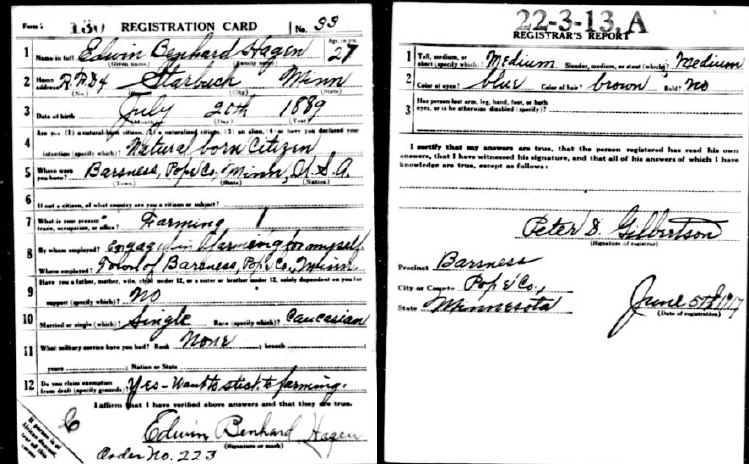 Form 1 130 REGISTRATION CARD No. 93
1 Name in full Edwin Benhard Hagen Age, in yrs. 27
(Given name) (Family name)
2 Home address R.F.D.4 Starbuck Minn
(No.) (Street) (City) (State)
3 Date of birth July 20th 1889
(Month) (Day) (Year)
4 Are you (1) a natural-born citizen, (2) a naturalized citizen, (3) an alien, (4) or have you declared your
intention (specify which)? Natural born Citizen
5 Where were you born? Barsness, Pope Co, Minn, U.S.A.
(Town) (State) (Nation)
6 If not a citizen, of what country are you a citizen or subject?
7 What is your present trade, occupation, or office? Farming
8 By whom employed? engaged in farming for myself
Where employed? Town of Barsness, Pope Co., Minn
9 Have you a father, mother, wife, child under 12, or a sister or brother under 12, solely dependent on you for
support (specify which)? No
10 Married or single (which)? Single Race (specify which)? Caucasian
11 What military service have you had? Rank None ; branch
years ; Nation or State
12 Do you claim exemption from draft (specify grounds)? Yes - Want to stick to farming.
I affirm that I have verified above answers and that they are true.
Edwin Benhard Hagen
(Signature or mark)
If person is of African descent, tear off this corner
Order No. 223
22-3-13, A
REGISTRAR'S REPORT
1 Tall, medium, or short (specify which)? Medium Slender, medium, or stout (which)? Medium
2 Color of eyes? blue Color of hair? brown Bald? No
3 Has person lost arm, leg, hand, foot, or both
eyes, or is he otherwise disabled (specify)?
I certify that my answers are true, that the person registered has read his own
answers, that I have witnessed his signature, and that all of his answers of which I have
knowledge are true, except as follows:
Peter D. Gilbertson
(Signature of registrar)
Precinct Barsness
City or County Pope Co.,
State Minnesota
June 5th 1917
(Date of registration)